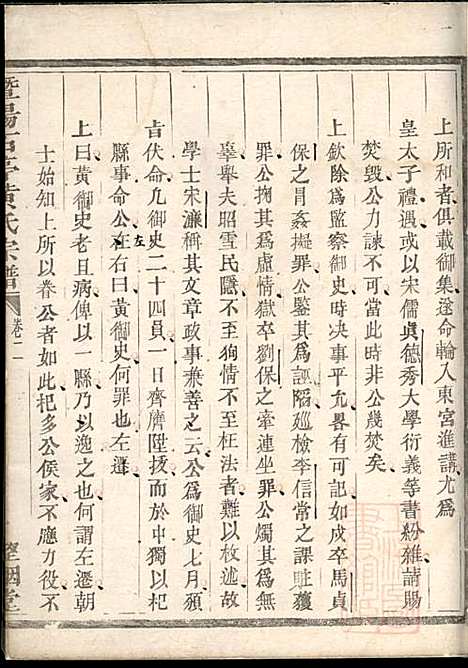 上所和者俱載御集遂命輪入東宮進講尤爲
皇太子禮遇或以宋儒眞德秀大學衍義等書紛雜請賜
焚毀公力諫不可當此時非公幾焚矣
上欽除爲監察御史時決事平允畧有可紀如戍卒馬貞
保之冒姦擬罪公鑒其爲誣陷廵檢李信常之課賍獲
罪公掬其爲虛情獄卒劉保之牽連坐罪公燭其無
辜舉夫昭雪民隱不至狥情不至枉法者難以枚述故
學士宋濂稱其文章政事兼善之云公爲御史七月頒
旨伏命凢御史二十四員一日齊齊陞技而於中獨以杞
縣事命公左右曰黃御史何罪也左遷
左
上曰黃御史老且病俾以一縣乃以逸之也曰何謂左遷朝
士始知上所以眷公者如此杞多公侯家不應力役不
暨陽
黃氏宗譜
卷一
堂